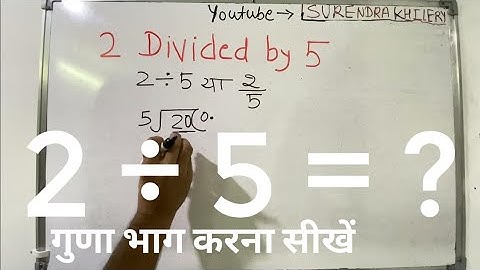 Youtube → SURENDRA KHILERY
2 Divided by 5
2 ÷ 5 या 2/5
5√20(0.
2 ÷ 5 = ?
गुणा भाग करना सीखें